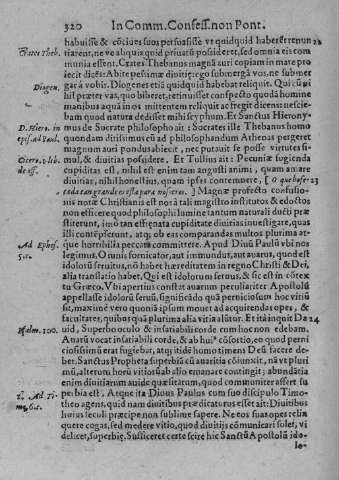 320 In Comm. Confess. non Pont.
habuisse & cõciues suos persuasisse vt quidquid haberẽt renun 22
Crates Theb.
tiarent, ne ve aliquis quid priuatũ possideret, sed omnia eis com
munia essent. Crates Thebanus magnã auri copiam in mare pro
iecit dicẽs: Abite pessimæ diuitiæ: ego submergã vos, ne submer
Diogen.
gar à vobis. Diogenes etiã quidquid habebat reliquit. Qui cũ ni
hil præter vas, quo biberet, retinuisset conspecto quodã homine
manibus aquã in os mittentem reliquit ac fregit dicens: nescie-
bam quod natura dedisset mihi scyphum. Et Sanctus Hierony-
D. Hiero. in
mus de Socrate philosopho ait: Socrates ille Thebanus homo
epist. ad Paul.
quondam ditissimus cũ ad philosophandum Athenas pergeret
magnum auri pondus abiecit, nec putauit se posse virtutes si-
Cicero. 2. lib.
mul, & diuitias possidere. Et Tullius ait: Pecuniæ fugienda
de off.
cupiditas est, nihil est enim tam angusti animi, quam amare
diuitias, nihil honestius, quam ipses contemnere,
23
Magnæ profecto confusio-
nis notæ Christianis est nos à tali magistro institutos & edoctos
non efficere quod philosophi lumine tantum naturali ducti præ
stiterunt, imò tan effrenata cupiditate diuitias inuestigare, quas
illi contẽpserunt, atq; ob eas comparandas multos plurima at-
Ad Ephes.
que horribilia peccata committere. Apud Diuũ Paulũ vbi nos
5.
legimus. Omnis fornicator, aut immundus, aut auarus, quod est
idolorũ seruitus, nõ habet hæreditatem in regno Christi & Dei,
alia translatio habet, Qui est idolorum seruus, & sic est in cõtex
tu Græco. Vbi apertius constat auarum peculiariter Apostolũ
appellasse idolorũ seruũ, significãdo quã perniciosum hoc vitiũ
sit, maximè vero quoniã ipsum mouet ad acquirendas opes, &
facultates, quibus quã plurima alia vitia alũtur. Et ita inquit Da 24
Psalm. 100.
uid, Superbo oculo & insatiabili corde cum hoc non edebam.
Auarũ vocat insatiabili corde, & ab huiꝰ cõsortio, eo quod perni
ciosissimũ erat fugiebat, atq; itidẽ homo timens Deũ facere de-
bet. Sanctus Propheta superbiã cũ auaritia cõiunxit, nã vt pluri
mũ, alterum horũ vitiorũ ab alio emanare contingit; abundãtia
enim diuitiarum auide quæsitarum, quod communiter assert su
2. Ad Ti-
perbia est. Atque ita Diuus Paulus cum suo discipulo Timo-
mo. 6.
theo agens, quid nam diuitibus prædicaturus esset ait: Diuitibus
huius seculi præcipe non sublime sapere. Ne eos suas opes relin
quere cogas, sed medere vitio, quod diuitijs cõmunicari solet, vi
delicet, superbię. Sufficeret certe scire hic Sanctũ Apostolũ ido-
lo-